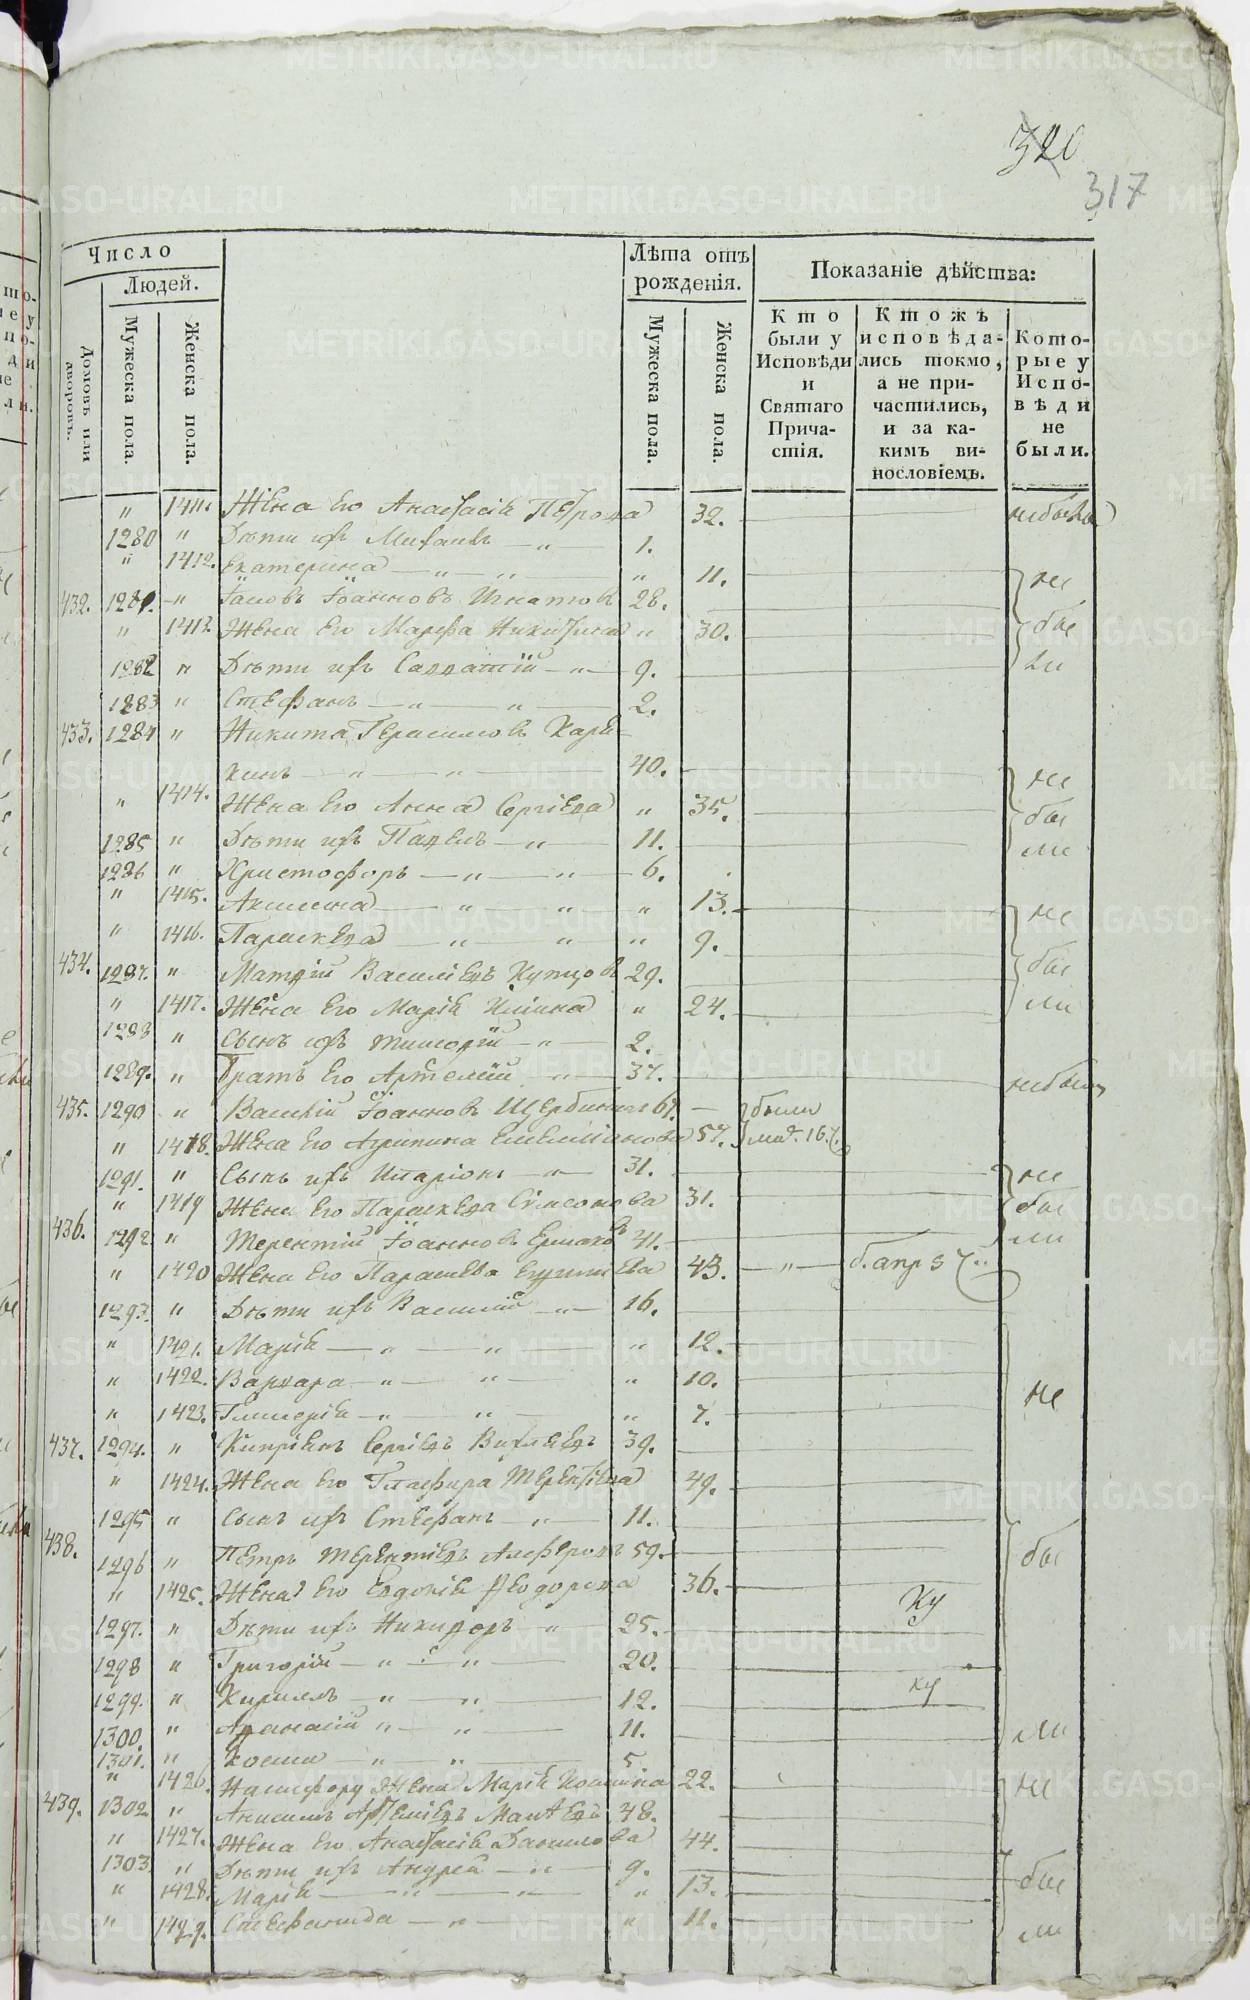 320
317
Число
Людей.
Домовъ или дворовъ.
Мужеска пола.
Женска пола.
Лѣта отъ рожденія.
Мужеска пола.
Женска пола.
Показаніе дѣйства:
Кто были у Исповѣди и Святаго Причастія.
Кто жъ исповѣдались токмо, а не причастились, и за какимъ винословіемъ.
Которые у Исповѣди не были.
" 1411. Жена его Анастасія Петрова 32. небыла
1280 " Дѣти ихъ Михаилъ — " — 1.
" 1412. Екатерина — " — " — " 11.
432. 1281. " Іаковъ Іоанновъ Игнатов 28. не
" 1413. Жена его Марфа Никитина " 30. бы
1282 " Дѣти ихъ — " — 9. ли
1283 " Стефанъ — " — " — 2.
433. 1284 " Никита Герасимовъ
кинъ — " — " — 40. не
" 1414. Жена его Анна Сергіева " 35. бы
1285 " Дѣти ихъ Павелъ — " — 11. ли
1286 " Христофоръ — " — " — 6.
" 1415. Акилина — " — " " 13. не
" 1416. Параскева — " — " " 9.
434. 1287. " Матѳій Василіевъ Купцов 29. бы
" 1417. Жена его Марія Ильина " 24. ли
1288 " Сынъ ихъ Тимоѳій — " — 2.
1289. " Братъ его Артемій — " — 37. небылъ
435. 1290 " Василій Іоанновъ Щербинин 61. — были
" 1418. Жена его Агрипина Емелиіанова 57. 16.
1291. " Сынъ ихъ Иларіонъ — " — 31. не
" 1419 Жена его Параскева Сімеонова 31. бы
436. 1292 " Терентій Іоанновъ Ермаковъ 41. ли
" 1420 Жена его Параскева 43. — " — б. апр 3
1293. " Дѣти ихъ Василій — " — 16.
" 1421. Марія — " — " — " 12.
" 1422. Варвара — " — " — " 10. не
" 1423. Гликерія — " — " — " 7.
437. 1294. " Кипріанъ Сергіевъ 39.
" 1424. Жена его Глафира Терентіева 49.
1295 " Сынъ ихъ Стефанъ — " — 11.
438. 1296 " Петръ Терентіевъ Алферовъ 59. бы
" 1425. Жена его Евдокія Ѳеодорова 36.
1297. " Дѣти ихъ Никифоръ — " — 25. Ку
1298 " Григорій — " — " — 20.
1299. " Кириллъ — " — " — 12. ку
1300. " Аѳанасій " — " — 11. ли
1301. " Косма — " — " — 5.
" 1426. Никифору Жена Марія 22. не
439. 1302 " Анисимъ Артеміевъ 48.
" 1427. Жена его Анастасія Данилова 44.
1303 " Дѣти ихъ Андрей — " — 9. бы
" 1428. Марія — " — " — " 13.
" 1429. Стефанида — " — " 11. ли